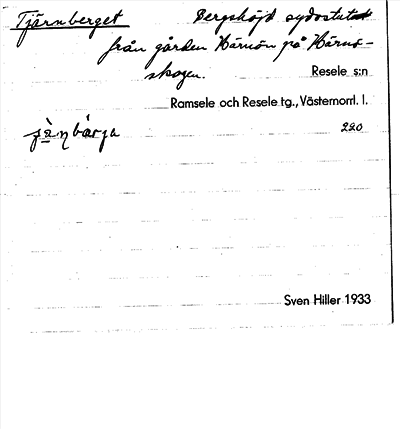 Tjärnberget Bergshöjd sydostut
från gården Kärnön på Kärnö-
skogen. Resele s:n
Ramsele och Resele tg., Västernorrl. l.
220
Sven Hiller 1933